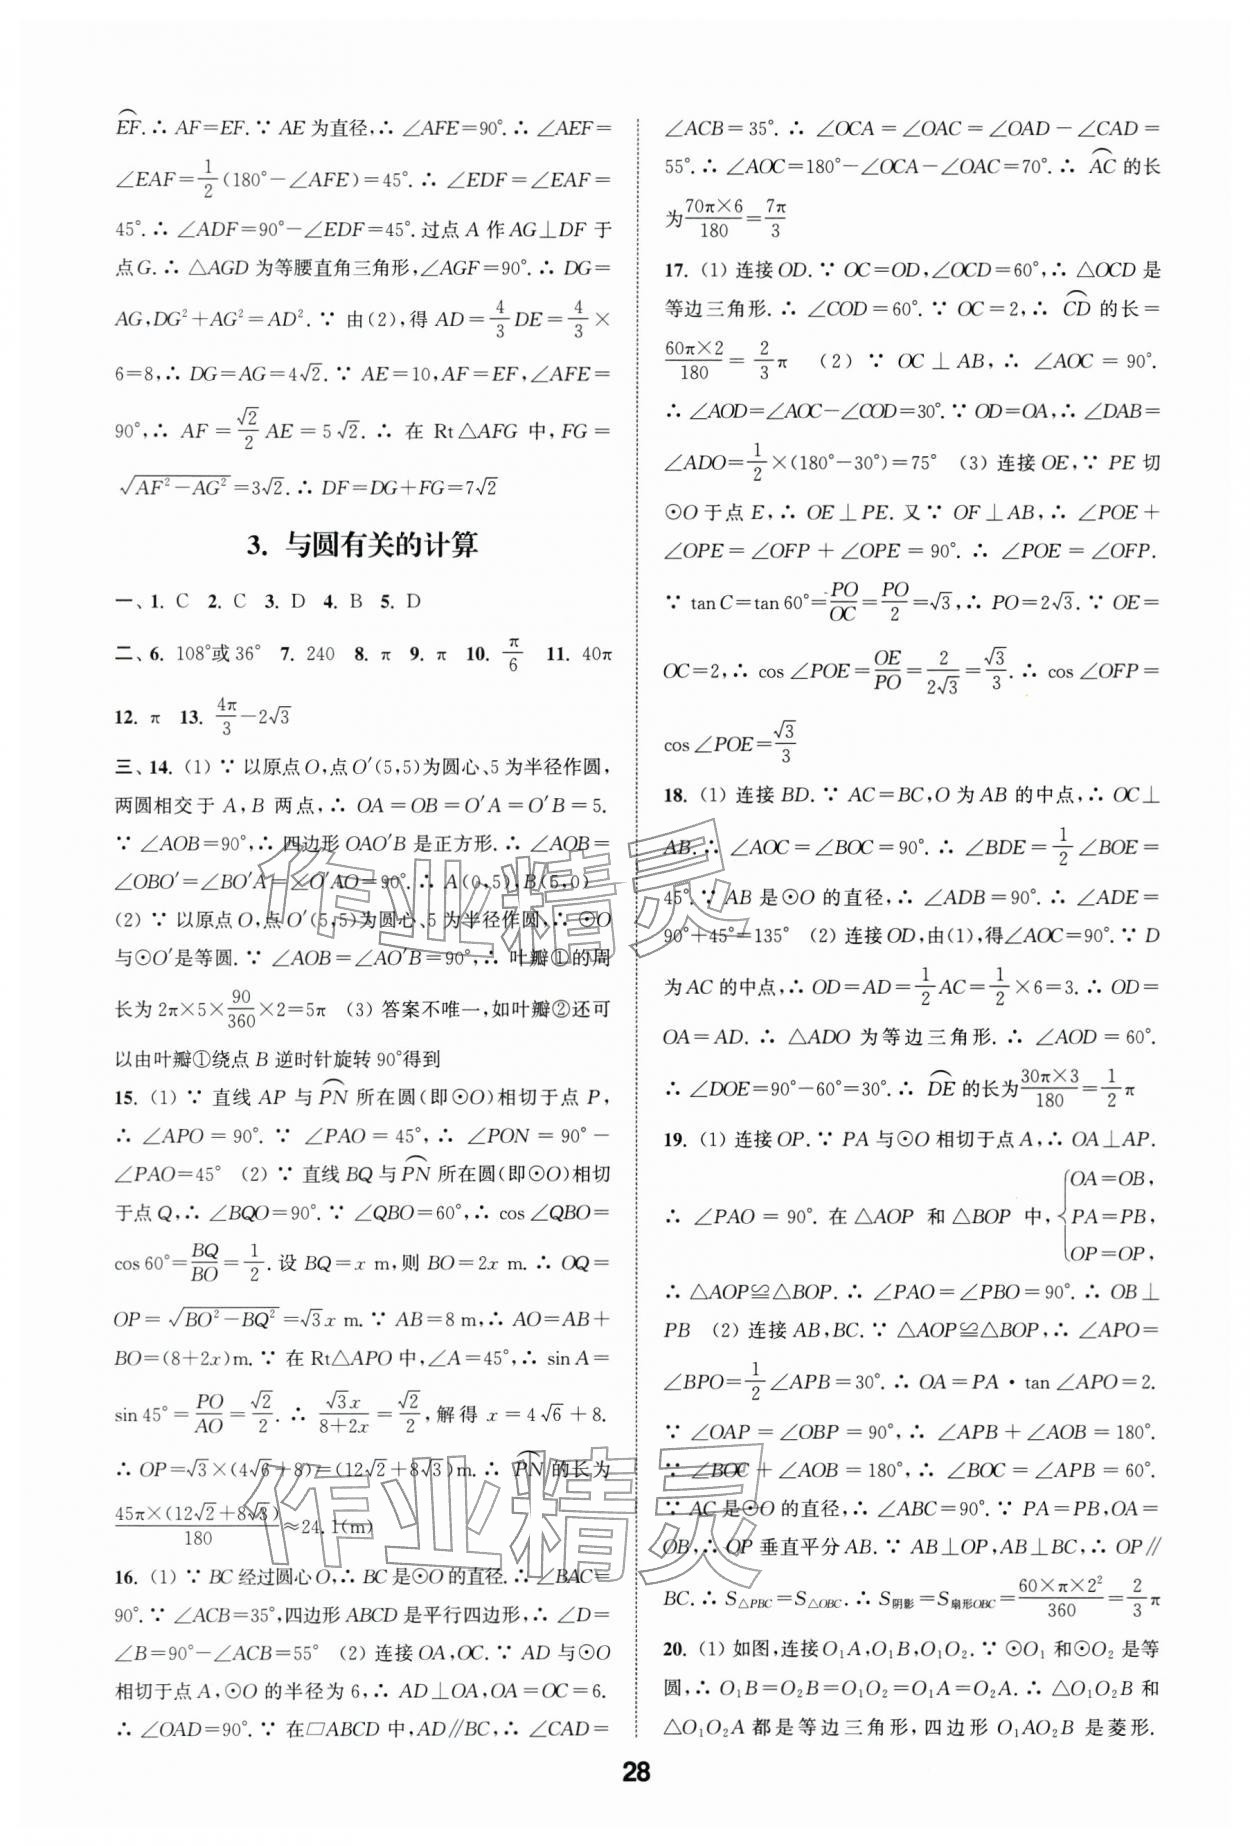 $\overset{\frown}{EF}$.∴ AF=EF.∵ AE 为直径,∴ ∠AFE=90°.∴ ∠AEF=
∠EAF=$\frac{1}{2}$(180°−∠AFE)=45°.∴ ∠EDF=∠EAF=
45°.∴ ∠ADF=90°−∠EDF=45°.过点 A 作 AG⊥DF 于
点G.∴ △AGD 为等腰直角三角形,∠AGF=90°.∴ DG=
AG,DG²+AG²=AD².∵ 由(2),得 AD=$\frac{4}{3}$DE=$\frac{4}{3}$×
6=8,∴ DG=AG=4√2.∵ AE=10,AF=EF,∠AFE=
90°,∴ AF=$\frac{\sqrt{2}}{2}$AE=5√2.∴ 在 Rt△AFG 中,FG=
$\sqrt{AF^2-AG^2}$=3√2.∴ DF=DG+FG=7√2
3. 与圆有关的计算
一、1. C 2. C 3. D 4. B 5. D
二、6. 108°或36° 7. 240 8. π 9. π 10. $\frac{π}{6}$ 11. 40π
12. π 13. $\frac{4π}{3}$−2√3
三、14. (1) ∵ 以原点O,点O′(5,5)为圆心、5为半径作圆,
两圆相交于 A,B 两点,∴ OA=OB=O′A=O′B=5.
∵ ∠AOB=90°,∴ 四边形 OAO′B 是正方形.∴ ∠AOB=
∠OBO′=∠BO′A=∠O′AO=90°.∴ A(0,5),B(5,0)
(2) ∵ 以原点O,点O′(5,5)为圆心、5为半径作圆,∴ ⊙O
与⊙O′是等圆.∵ ∠AOB=∠AO′B=90°,∴ 叶瓣①的周
长为2π×5×$\frac{90}{360}$×2=5π (3) 答案不唯一,如叶瓣②还可
以由叶瓣①绕点 B 逆时针旋转 90°得到
15. (1) ∵ 直线 AP 与 $\overset{\frown}{PN}$ 所在圆(即⊙O)相切于点 P,
∴ ∠APO=90°.∵ ∠PAO=45°,∴ ∠PON=90°−
∠PAO=45° (2) ∵ 直线BQ与$\overset{\frown}{PN}$所在圆(即⊙O)相切
于点Q,∴ ∠BQO=90°.∵ ∠QBO=60°,∴ cos∠QBO=
cos60°=$\frac{BQ}{BO}$=$\frac{1}{2}$.设 BQ=x m,则 BO=2x m.∴ OQ=
OP=$\sqrt{BO^2-BQ^2}$=√3x m.∵ AB=8 m,∴ AO=AB+
BO=(8+2x)m.∵ 在Rt△APO中,∠A=45°,∴ sin A=
sin 45°=$\frac{PO}{AO}$=$\frac{\sqrt{2}}{2}$.∴ $\frac{\sqrt{3}x}{8+2x}$=$\frac{\sqrt{2}}{2}$,解得 x=4√6+8.
∴ OP=√3×(4√6+8)=(12√2+8√3)m.∴ $\overset{\frown}{PN}$ 的长为
$\frac{45π×(12\sqrt{2}+8\sqrt{3})}{180}$≈24.1(m)
16. (1) ∵ BC经过圆心O,∴ BC是⊙O的直径.∴ ∠BAC=
90°.∵ ∠ACB=35°,四边形ABCD是平行四边形,∴ ∠D=
∠B=90°−∠ACB=55° (2) 连接OA,OC.∵ AD与⊙O
相切于点A,⊙O的半径为6,∴ AD⊥OA,OA=OC=6.
∴ ∠OAD=90°.∵ 在□ABCD中,AD∥BC,∴ ∠CAD=
∠ACB=35°.∴ ∠OCA=∠OAC=∠OAD−∠CAD=
55°.∴ ∠AOC=180°−∠OCA−∠OAC=70°.∴ $\overset{\frown}{AC}$ 的长
为$\frac{70π×6}{180}$=$\frac{7π}{3}$
17. (1) 连接OD.∵ OC=OD,∠OCD=60°,∴ △OCD是
等边三角形.∴ ∠COD=60°.∵ OC=2,∴ $\overset{\frown}{CD}$ 的长=
$\frac{60π×2}{180}$=$\frac{2}{3}$π (2) ∵ OC⊥AB,∴ ∠AOC=90°.
∴ ∠AOD=∠AOC−∠COD=30°.∵ OD=OA,∴ ∠DAB=
∠ADO=$\frac{1}{2}$×(180°−30°)=75° (3) 连接OE,∵ PE切
⊙O于点E,∴ OE⊥PE.又∵ OF⊥AB,∴ ∠POE+
∠OPE=∠OFP+∠OPE=90°.∴ ∠POE=∠OFP.
∵ tan C=tan 60°=$\frac{PO}{OC}$=$\frac{PO}{2}$=√3,∴ PO=2√3.∵ OE=
OC=2,∴ cos∠POE=$\frac{OE}{PO}$=$\frac{2}{2\sqrt{3}}$=$\frac{\sqrt{3}}{3}$.∴ cos∠OFP=
cos∠POE=$\frac{\sqrt{3}}{3}$
18. (1) 连接BD.∵ AC=BC,O为AB的中点,∴ OC⊥
AB.∴ ∠AOC=∠BOC=90°.∴ ∠BDE=$\frac{1}{2}$∠BOE=
45°.∵ AB是⊙O的直径,∴ ∠ADB=90°.∴ ∠ADE=
90°+45°=135° (2) 连接OD,由(1),得∠AOC=90°.∵ D
为AC的中点,∴ OD=AD=$\frac{1}{2}$AC=$\frac{1}{2}$×6=3.∴ OD=
OA=AD.∴ △ADO 为等边三角形.∴ ∠AOD=60°.
∴ ∠DOE=90°−60°=30°.∴ $\overset{\frown}{DE}$的长为$\frac{30π×3}{180}$=$\frac{1}{2}$π
19. (1) 连接OP.∵ PA与⊙O相切于点A,∴ OA⊥AP.
∴ ∠PAO=90°.在△AOP 和△BOP 中,$\begin{cases}OA=OB,\\PA=PB,\\OP=OP,\end{cases}$
∴ △AOP≌△BOP.∴ ∠PAO=∠PBO=90°.∴ OB⊥
PB (2) 连接AB,BC.∵ △AOP≌△BOP,∴ ∠APO=
∠BPO=$\frac{1}{2}$∠APB=30°.∴ OA=PA·tan∠APO=2.
∵ ∠OAP=∠OBP=90°,∴ ∠APB+∠AOB=180°.
∵ ∠BOC+∠AOB=180°,∴ ∠BOC=∠APB=60°.
∵ AC是⊙O的直径,∴ ∠ABC=90°.∵ PA=PB,OA=
OB,∴ OP垂直平分AB.∵ AB⊥OP,AB⊥BC,∴ OP∥
BC.∴ $S_{△PBC}$=$S_{△OBC}$.∴ $S_{阴影}$=$S_{扇形OBC}$=$\frac{60×π×2^2}{360}$=$\frac{2}{3}$π
20. (1) 如图,连接O₁A,O₁B,O₁O₂.∵ ⊙O₁和⊙O₂是等
圆,∴ O₁B=O₂B=O₁O₂=O₁A=O₂A.∴ △O₁O₂B和
△O₁O₂A都是等边三角形,四边形O₁AO₂B是菱形.
28
作业精灵
作业精灵